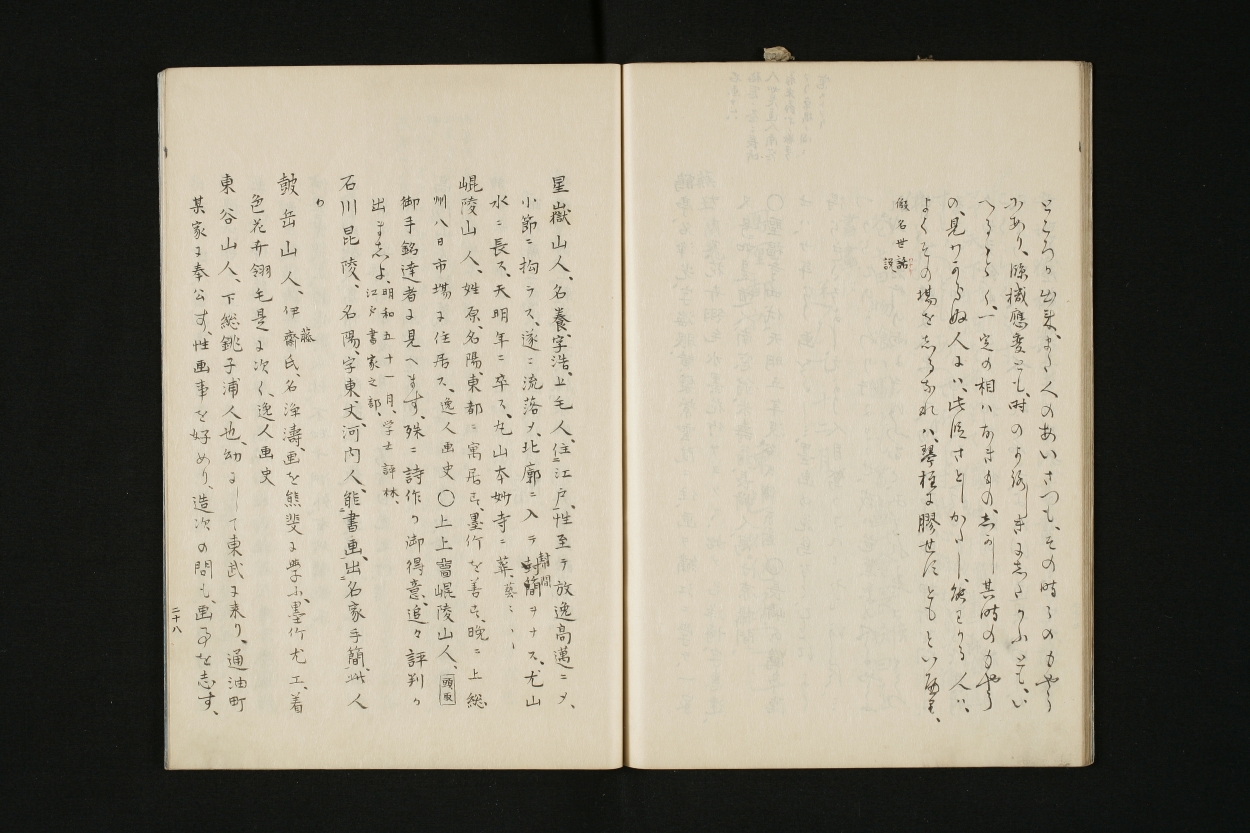 ところか出来、また人のあいさつも、その時々のもやう
にあり、臨機應変とも、時のよろしきにしたかふとも、い
へることく、一定の相ハなきもの、しかし其時のもやう
の、見わからぬ人にハ、此伝さとしかたし、能わかる人ハ、
よくその場をしるなれハ、琴柱に膠せにともといふ
假名世話
説
星嶽山人、名養、字浩、上毛人、住ニ江戸、性至テ放逸高邁ニメ、
小節ニ拘ラス、遂ニ流落メ、北廓ニ入テ封間ヲナス、尤山
幇間
水ニ長ス、天明年ニ卒ス、丸山本妙寺ニ葬、
崐陵山人、姓原、名陽、東都ニ寓居ス、墨竹を善ス、晩ニ上総
州八日市場に住居ス、逸人画史 〇上上 崐陵山人、頭取
御手銘達者に見へます、殊ニ詩作の御得意、追々評判か
出ましよ、明和五十一月、学士評林、
江戸書家之部、
石川昆陵、名陽、字東丈、河内人、能ニ書画、出ニ名家手簡、此人
か
皷岳山人、伊齋氏、名浄濤、画を熊斐に学ふ、墨竹尤工、着
藤
色花卉翎毛是に次く、逸人画史
東谷山人、下総銚子浦人也、幼にして東武に来り、通油町
某家に奉公す、性画事を好めり、造次の間も、画事を志す、
二十八